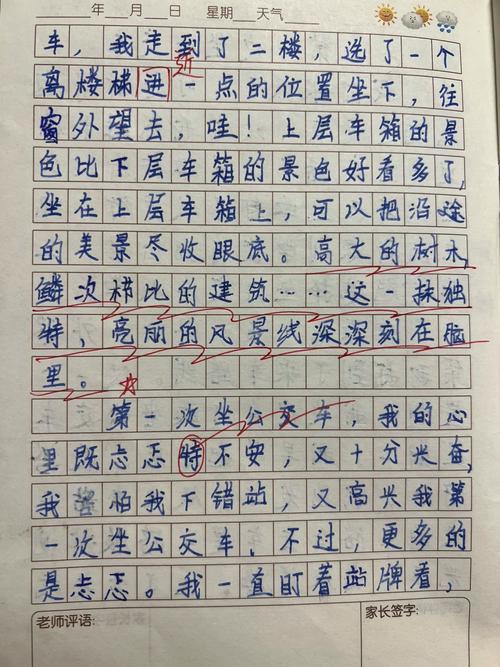 年 月 日 星期 天气
车，我走到了二楼，选了一个
近
离楼梯进一点的位置坐下，往
窗外望去，哇！上层车箱的景
色比下层车箱的景色好看多了，
坐在上层车箱上，可以把沿途
的美景尽收眼底。高大的树木，
鳞次栉比的建筑……这一抹独
特，亮丽的风景线深深刻在脑
里。
第一次坐公交车，我的心
里既忐忑特不安，又十分兴奋，
我怕我下错站，又高兴我第
一次坐公交车，不过，更多的
是忐忑。我一直盯着站牌看，
老师评语： 家长签字：